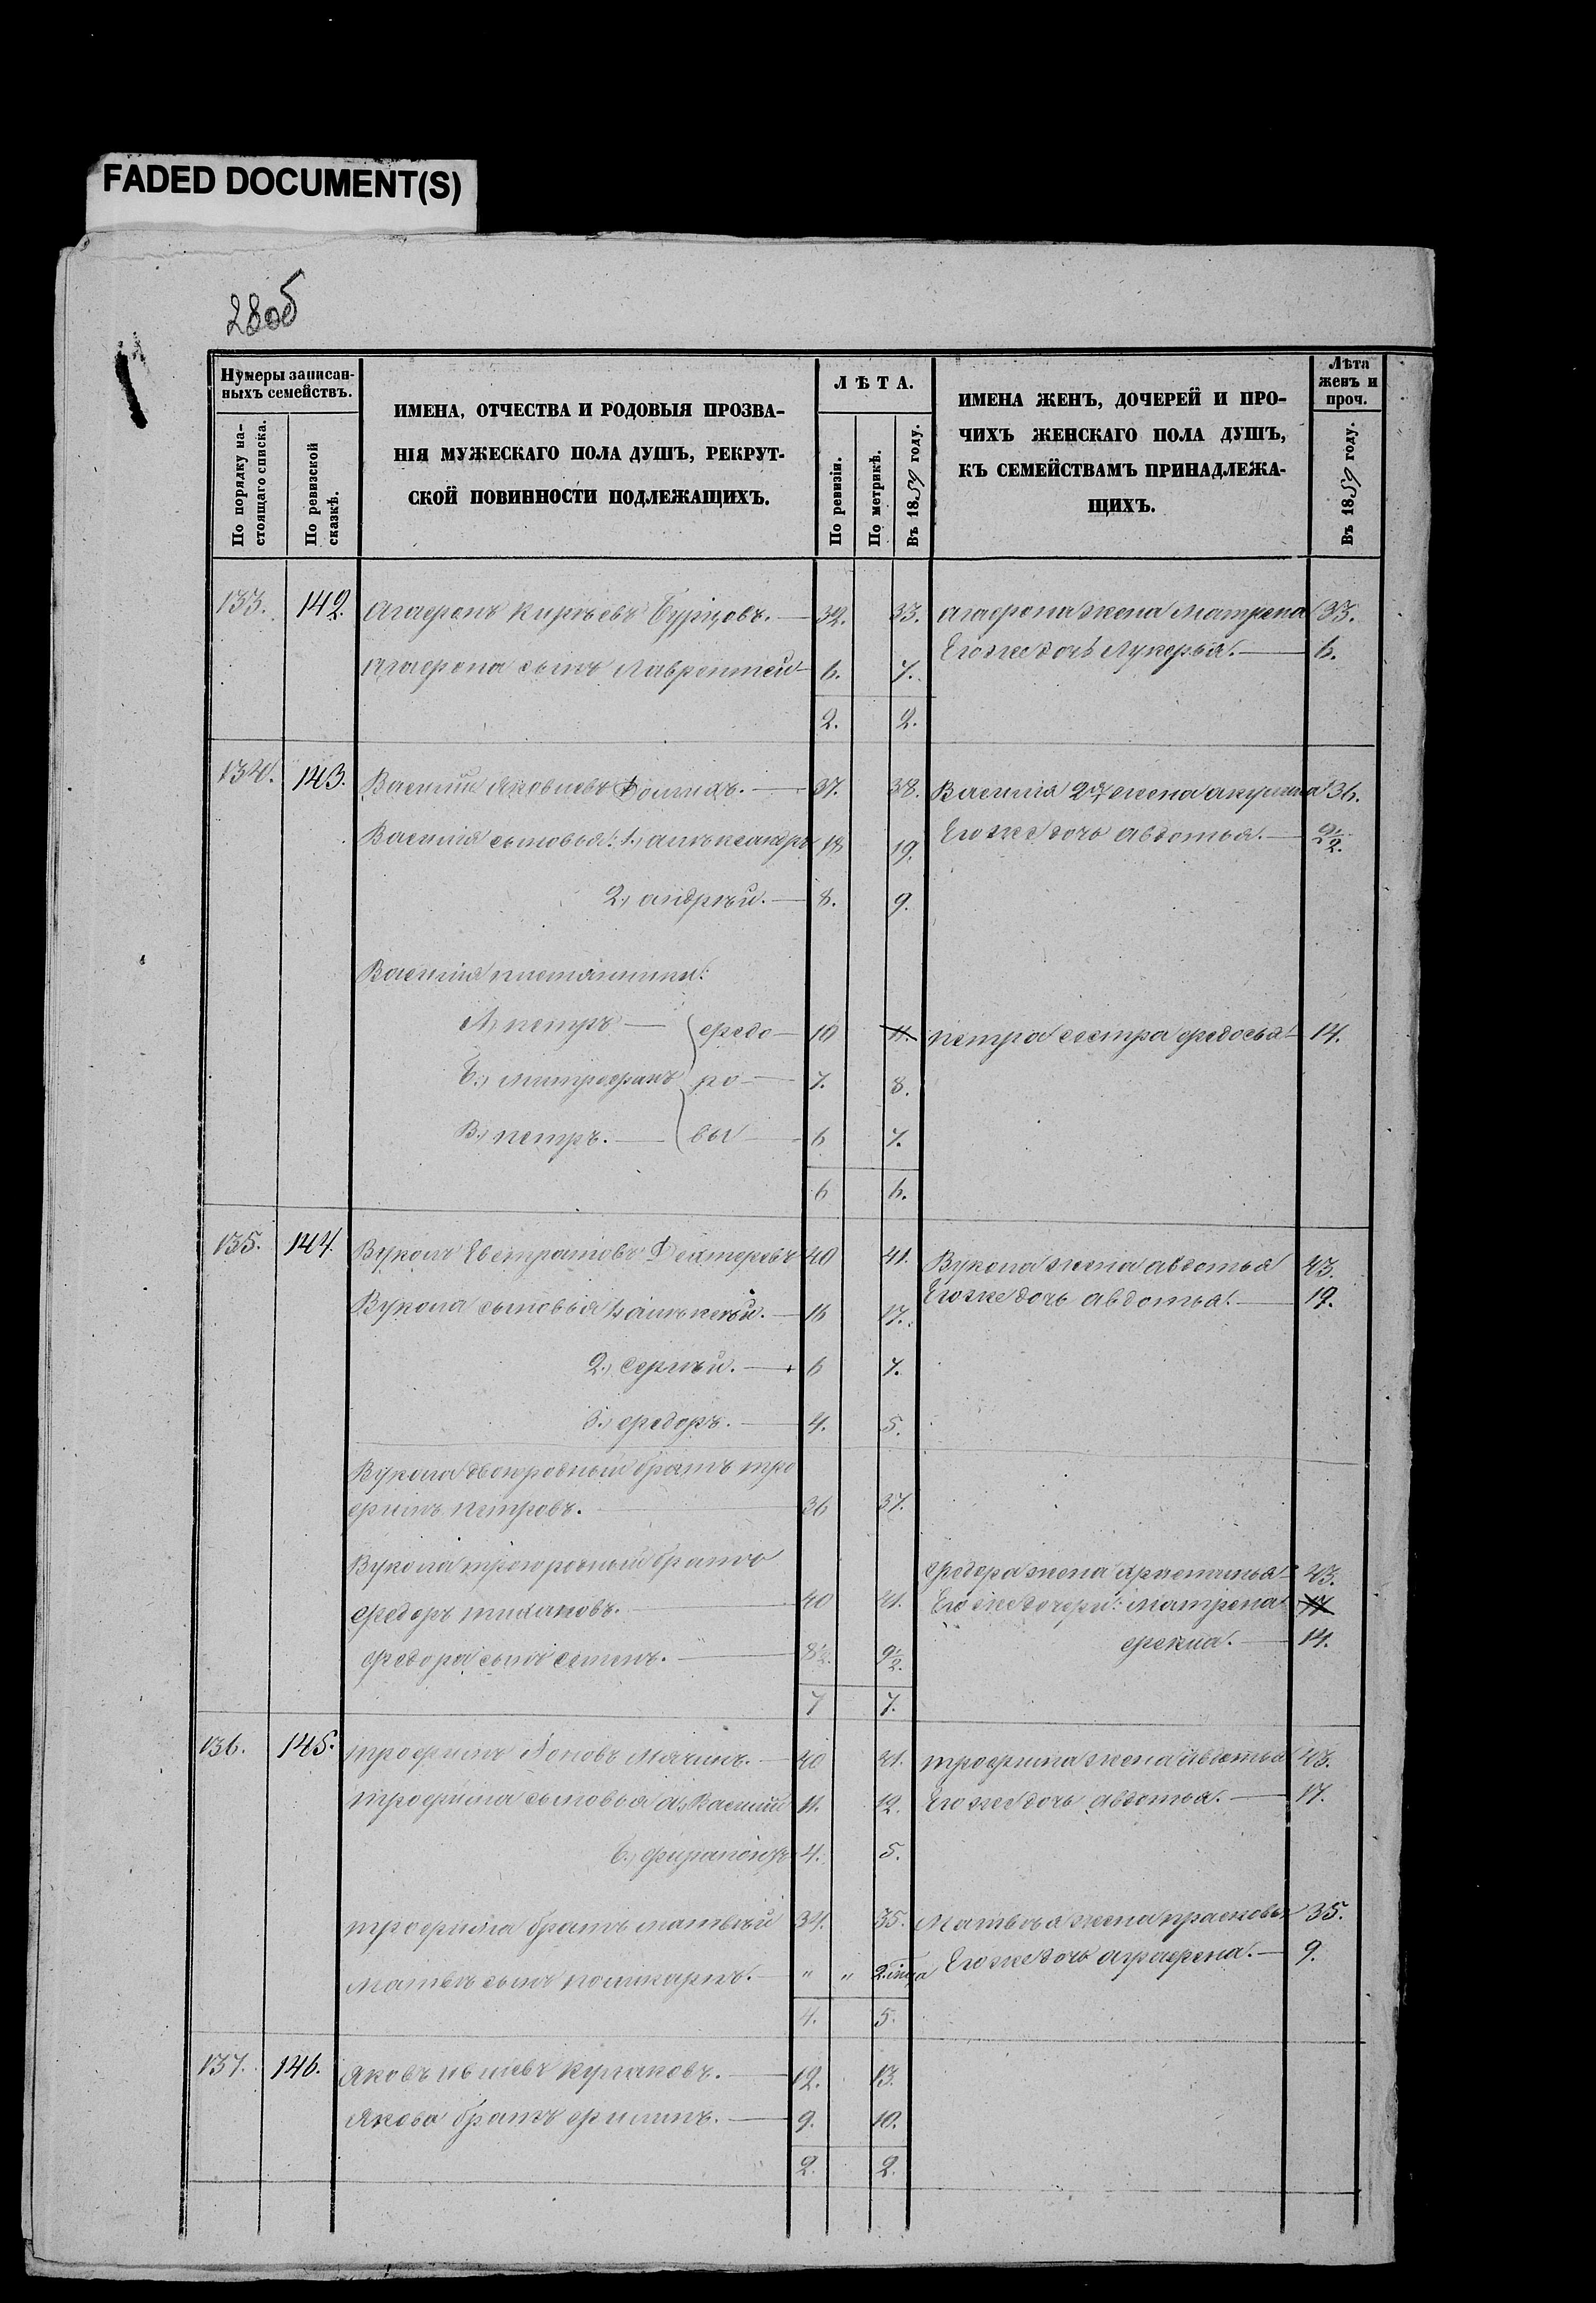 FADED DOCUMENT(S)
28об
Нумеры записан-
ныхъ семействъ.
По порядку на-
стоящаго списка.
По ревизской
сказкѣ.
ИМЕНА, ОТЧЕСТВА И РОДОВЫЯ ПРОЗВА-
НІЯ МУЖЕСКАГО ПОЛА ДУШЪ, РЕКРУТ-
СКОЙ ПОВИННОСТИ ПОДЛЕЖАЩИХЪ.
ЛѢТА.
По ревизіи.
По метрикѣ.
Въ 1859 году.
ИМЕНА ЖЕНЪ, ДОЧЕРЕЙ И ПРО-
ЧИХЪ ЖЕНСКАГО ПОЛА ДУШЪ,
КЪ СЕМЕЙСТВАМЪ ПРИНАДЛЕЖА-
ЩИХЪ.
Лѣта
женъ и
проч.
Въ 1859 году.
133. 142. Агафонъ Киреевъ Бурцовъ. 32. 33. Агафона жена Матрена 33.
Агафона сынъ Лаврентей 6. 7. Его же дочь Лукерья. 6.
2. 2.
134. 143. Василий Яковлевъ 37. 38. Василія 2я жена Акулина 36.
Василія сыновья: 1., Алѣксандръ 18 19. Его же дочь Авдотья.
2., Андрѣй. 8. 9.
Василія племянники:
А, Петръ Федо 10 11. Петра сестра Федосья 14.
Б., Митрофанъ ро 7. 8.
В., Петръ. вы 6 7.
6 6.
135. 144. Вуколъ Евстратовъ Дехтеревъ 40 41. Вукола жена Авдотья 43.
Вукола сыновья 1, Алѣксѣй. 16 17. Его же дочь Авдотья. 19.
2., Сергѣй. 6 7.
3., Федоръ. 4. 5.
Вукола двоюродный братъ Тро
фимъ Петровъ. 36 37.
Вукола троюродный братъ
Федоръ Тихановъ. 40 41. Федора жена 43.
Его же дочери: Матрена 17
Федора сынъ Семенъ. 8½. 9½. Фекла. 14.
7 7.
136. 145. Трофимъ Мячинъ. 40 41. Трофима жена Авдотья 43.
Трофима сыновья а, Василій 11. 12. Его же дочь Авдотья. 17.
б., 4. 5.
Трофима братъ Матвѣй 34. 35. Матвѣя жена Прасковья 35.
Матвѣя сынъ Поликарпъ. " " 2. Его же дочь Аграфена. 9.
4. 5.
137. 146. Яковъ 12. 13.
Якова братъ Филипъ. 9. 10.
2. 2.